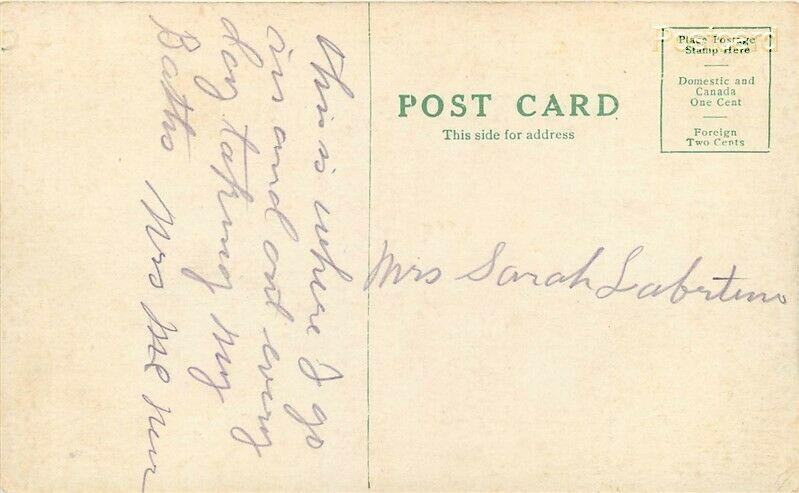 this is where I go
in and out every
day taking my
Baths Mrs Mc
POST CARD
This side for address
Place Postage
Stamp Here
Domestic and
Canada
One Cent
Foreign
Two Cents
Mrs Sarah